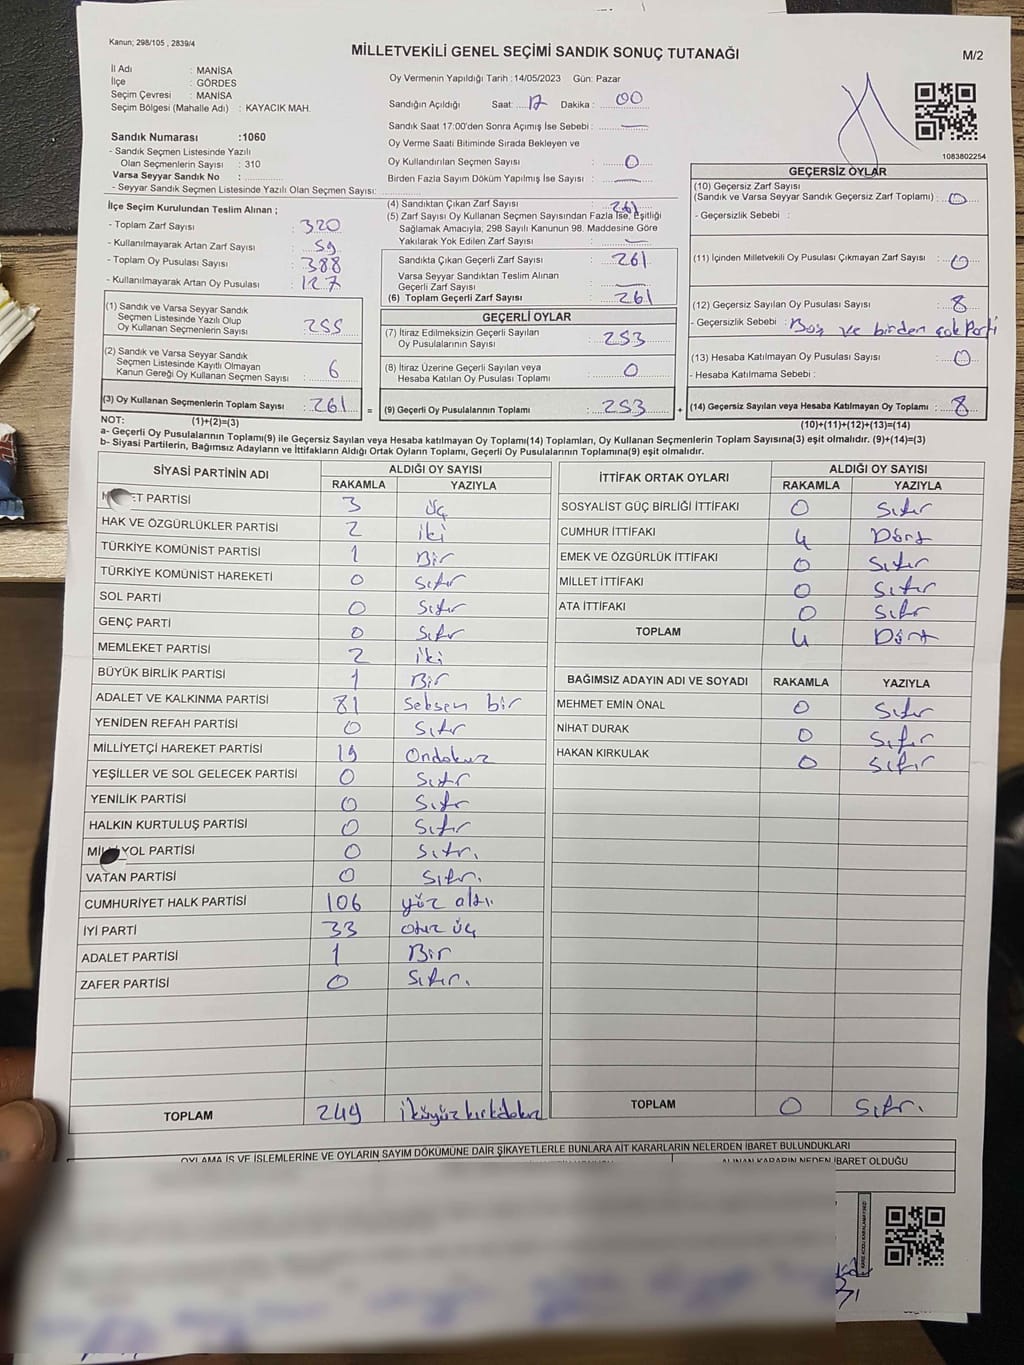 Kanun; 298/105 , 2839/4
MİLLETVEKİLİ GENEL SEÇİMİ SANDIK SONUÇ TUTANAĞI
M/2
İl Adı : MANİSA
İlçe : GÖRDES
Seçim Çevresi : MANİSA
Seçim Bölgesi (Mahalle Adı) : KAYACIK MAH.
Sandık Numarası :1060
- Sandık Seçmen Listesinde Yazılı
Olan Seçmenlerin Sayısı : 310
Varsa Seyyar Sandık No :
- Seyyar Sandık Seçmen Listesinde Yazılı Olan Seçmen Sayısı:
Oy Vermenin Yapıldığı Tarih :14/05/2023 Gün: Pazar
Sandığın Açıldığı Saat: 17 Dakika : 00
Sandık Saat 17:00'den Sonra Açımış İse Sebebi : —
Oy Verme Saati Bitiminde Sırada Bekleyen ve
Oy Kullandırılan Seçmen Sayısı : 0
Birden Fazla Sayım Döküm Yapılmış İse Sayısı : —
1083802254
İlçe Seçim Kurulundan Teslim Alınan ;
- Toplam Zarf Sayısı : 320
- Kullanılmayarak Artan Zarf Sayısı : 59
- Toplam Oy Pusulası Sayısı : 388
- Kullanılmayarak Artan Oy Pusulası : 127
(1) Sandık ve Varsa Seyyar Sandık
Seçmen Listesinde Yazılı Olup
Oy Kullanan Seçmenlerin Sayısı : 255
(2) Sandık ve Varsa Seyyar Sandık
Seçmen Listesinde Kayıtlı Olmayan
Kanun Gereği Oy Kullanan Seçmen Sayısı : 6
(3) Oy Kullanan Seçmenlerin Toplam Sayısı : 261 =
(1)+(2)=(3)
(4) Sandıktan Çıkan Zarf Sayısı : 261
(5) Zarf Sayısı Oy Kullanan Seçmen Sayısından Fazla İse, Eşitliği
Sağlamak Amacıyla; 298 Sayılı Kanunun 98. Maddesine Göre
Yakılarak Yok Edilen Zarf Sayısı : —
Sandıkta Çıkan Geçerli Zarf Sayısı : 261
Varsa Seyyar Sandıktan Teslim Alınan
Geçerli Zarf Sayısı : —
(6) Toplam Geçerli Zarf Sayısı : 261
GEÇERLİ OYLAR
(7) İtiraz Edilmeksizin Geçerli Sayılan
Oy Pusulalarının Sayısı : 253
(8) İtiraz Üzerine Geçerli Sayılan veya
Hesaba Katılan Oy Pusulası Toplamı : 0
(9) Geçerli Oy Pusulalarının Toplamı : 253 +
GEÇERSİZ OYLAR
(10) Geçersiz Zarf Sayısı
(Sandık ve Varsa Seyyar Sandık Geçersiz Zarf Toplamı) : 0
- Geçersizlik Sebebi :
(11) İçinden Milletvekili Oy Pusulası Çıkmayan Zarf Sayısı : 0
(12) Geçersiz Sayılan Oy Pusulası Sayısı : 8
- Geçersizlik Sebebi : Boş ve birden çok Parti
(13) Hesaba Katılmayan Oy Pusulası Sayısı : 0
- Hesaba Katılmama Sebebi :
(14) Geçersiz Sayılan veya Hesaba Katılmayan Oy Toplamı : 8
(10)+(11)+(12)+(13)=(14)
NOT:
a- Geçerli Oy Pusulalarının Toplamı(9) ile Geçersiz Sayılan veya Hesaba katılmayan Oy Toplamı(14) Toplamları, Oy Kullanan Seçmenlerin Toplam Sayısına(3) eşit olmalıdır. (9)+(14)=(3)
b- Siyasi Partilerin, Bağımsız Adayların ve İttifakların Aldığı Ortak Oyların Toplamı, Geçerli Oy Pusulalarının Toplamına(9) eşit olmalıdır.
SİYASİ PARTİNİN ADI ALDIĞI OY SAYISI
RAKAMLA YAZIYLA
PARTİSİ 3 Üç
HAK VE ÖZGÜRLÜKLER PARTİSİ 2 iki
TÜRKİYE KOMÜNİST PARTİSİ 1 Bir
TÜRKİYE KOMÜNİST HAREKETİ 0 Sıfır
SOL PARTİ 0 Sıfır
GENÇ PARTİ 0 Sıfır
MEMLEKET PARTİSİ 2 iki
BÜYÜK BİRLİK PARTİSİ 1 Bir
ADALET VE KALKINMA PARTİSİ 81 seksen bir
YENİDEN REFAH PARTİSİ 0 Sıfır
MİLLİYETÇİ HAREKET PARTİSİ 19 Ondokuz
YEŞİLLER VE SOL GELECEK PARTİSİ 0 Sıfır
YENİLİK PARTİSİ 0 Sıfır
HALKIN KURTULUŞ PARTİSİ 0 Sıfır
YOL PARTİSİ 0 Sıfır.
VATAN PARTİSİ 0 Sıfır.
CUMHURİYET HALK PARTİSİ 106 yüz altı.
İYİ PARTİ 33 otuz üç
ADALET PARTİSİ 1 Bir
ZAFER PARTİSİ 0 Sıfır.
TOPLAM 249 ikiyüzkırkdokuz
İTTİFAK ORTAK OYLARI ALDIĞI OY SAYISI
RAKAMLA YAZIYLA
SOSYALİST GÜÇ BİRLİĞİ İTTİFAKI 0 Sıfır
CUMHUR İTTİFAKI 4 Dört
EMEK VE ÖZGÜRLÜK İTTİFAKI 0 Sıfır
MİLLET İTTİFAKI 0 Sıfır
ATA İTTİFAKI 0 Sıfır
TOPLAM 4 Dört
BAĞIMSIZ ADAYIN ADI VE SOYADI RAKAMLA YAZIYLA
MEHMET EMİN ÖNAL 0 Sıfır
NİHAT DURAK 0 Sıfır
HAKAN KIRKULAK 0 Sıfır
TOPLAM 0 Sıfır.
OYLAMA İŞ VE İŞLEMLERİNE VE OYLARIN SAYIM DÖKÜMÜNE DAİR ŞİKAYETLERLE BUNLARA AİT KARARLARIN NELERDEN İBARET BULUNDUKLARI
ALINAN KARARIN NEDEN İBARET OLDUĞU